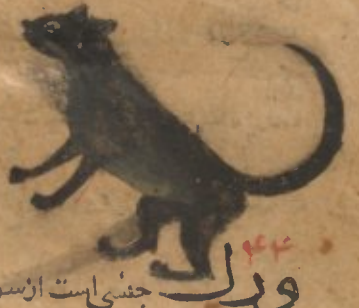 ۴۴
ورل جنسی است از سو